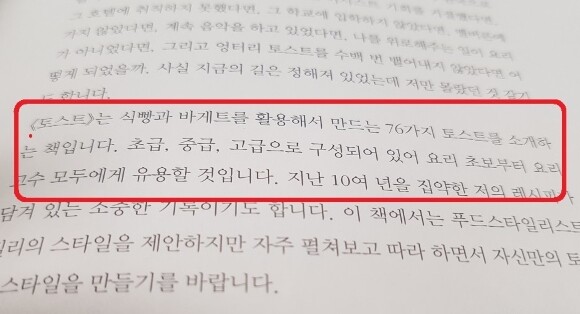 그 호텔에 취직하지 못했다면, 그 학교에 입학하지 않았다면,
가지 않았다면, 계속 음악을 하고 있었다면, 나를 위로해주는 일이 요리
가 아니었다면, 그리고 엉터리 토스트를 수백 번 뱉어내지 않았다면 어
떻게 되었을까. 사실 지금의 길은 정해져 있었는데 저만 몰랐던 것 같기
도 합니다.
《토스트》는 식빵과 바게트를 활용해서 만드는 76가지 토스트를 소개하
는 책입니다. 초급, 중급, 고급으로 구성되어 있어 요리 초보부터 요리
고수 모두에게 유용할 것입니다. 지난 10여 년을 집약한 저의 레시피가
담겨 있는 소중한 기록이기도 합니다. 이 책에서는 푸드스타일리스트
일리의 스타일을 제안하지만 자주 펼쳐보고 따라 하면서 자신만의 토
스타일을 만들기를 바랍니다.